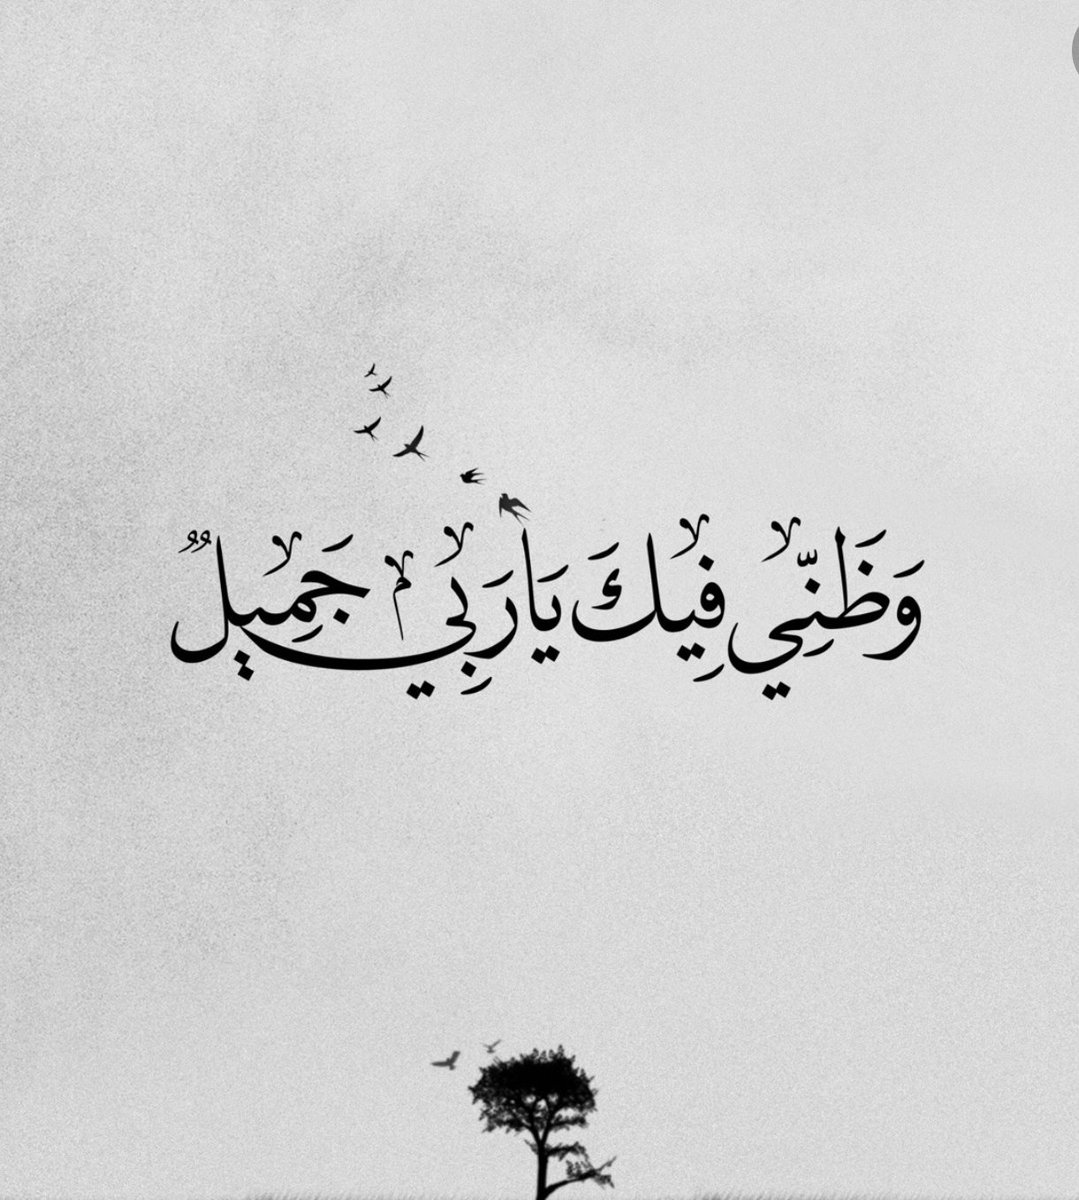 وَظَنِّي فِيكَ يَارَبِي جَمِيلٌ